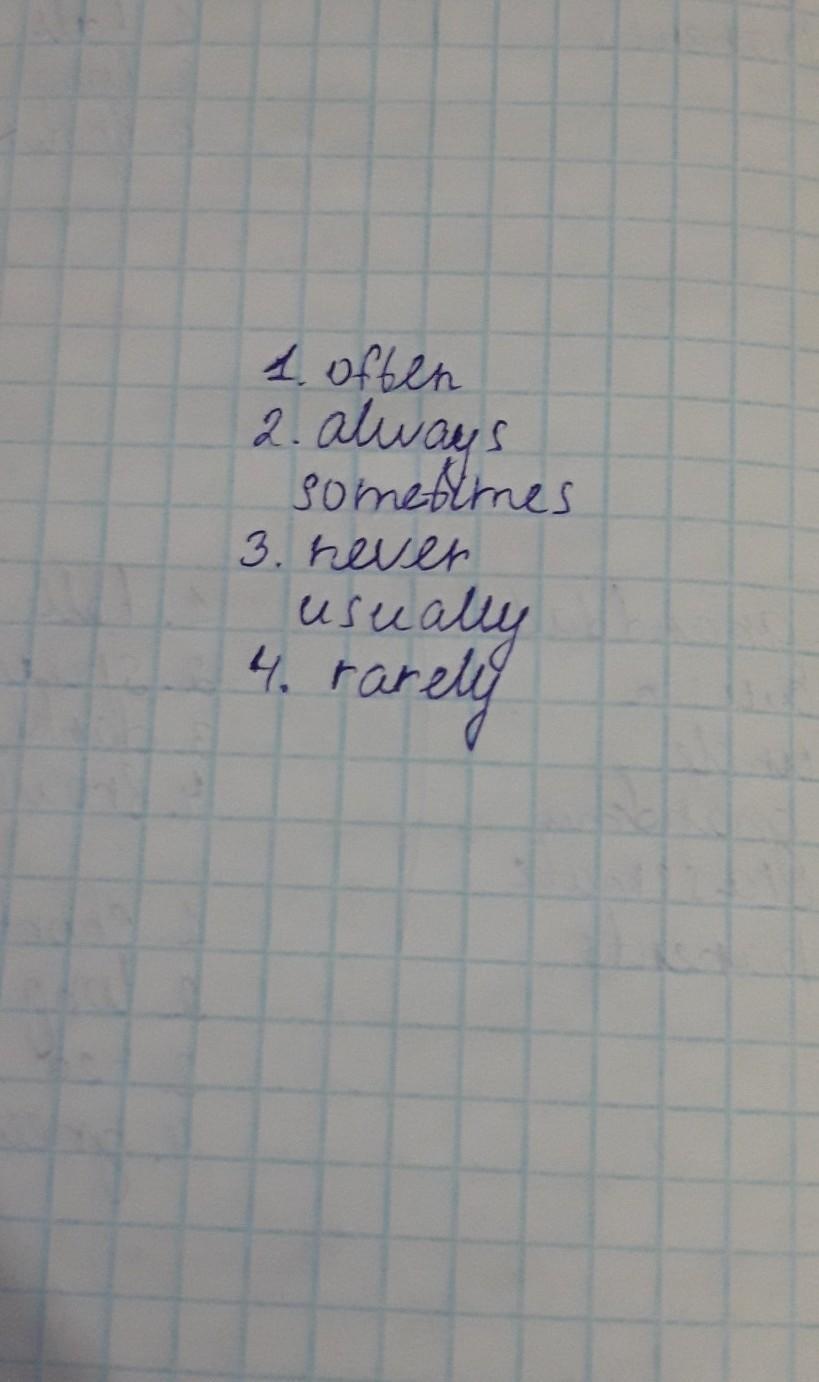 1. often
2. always
sometimes
3. never
usually
4. rarely